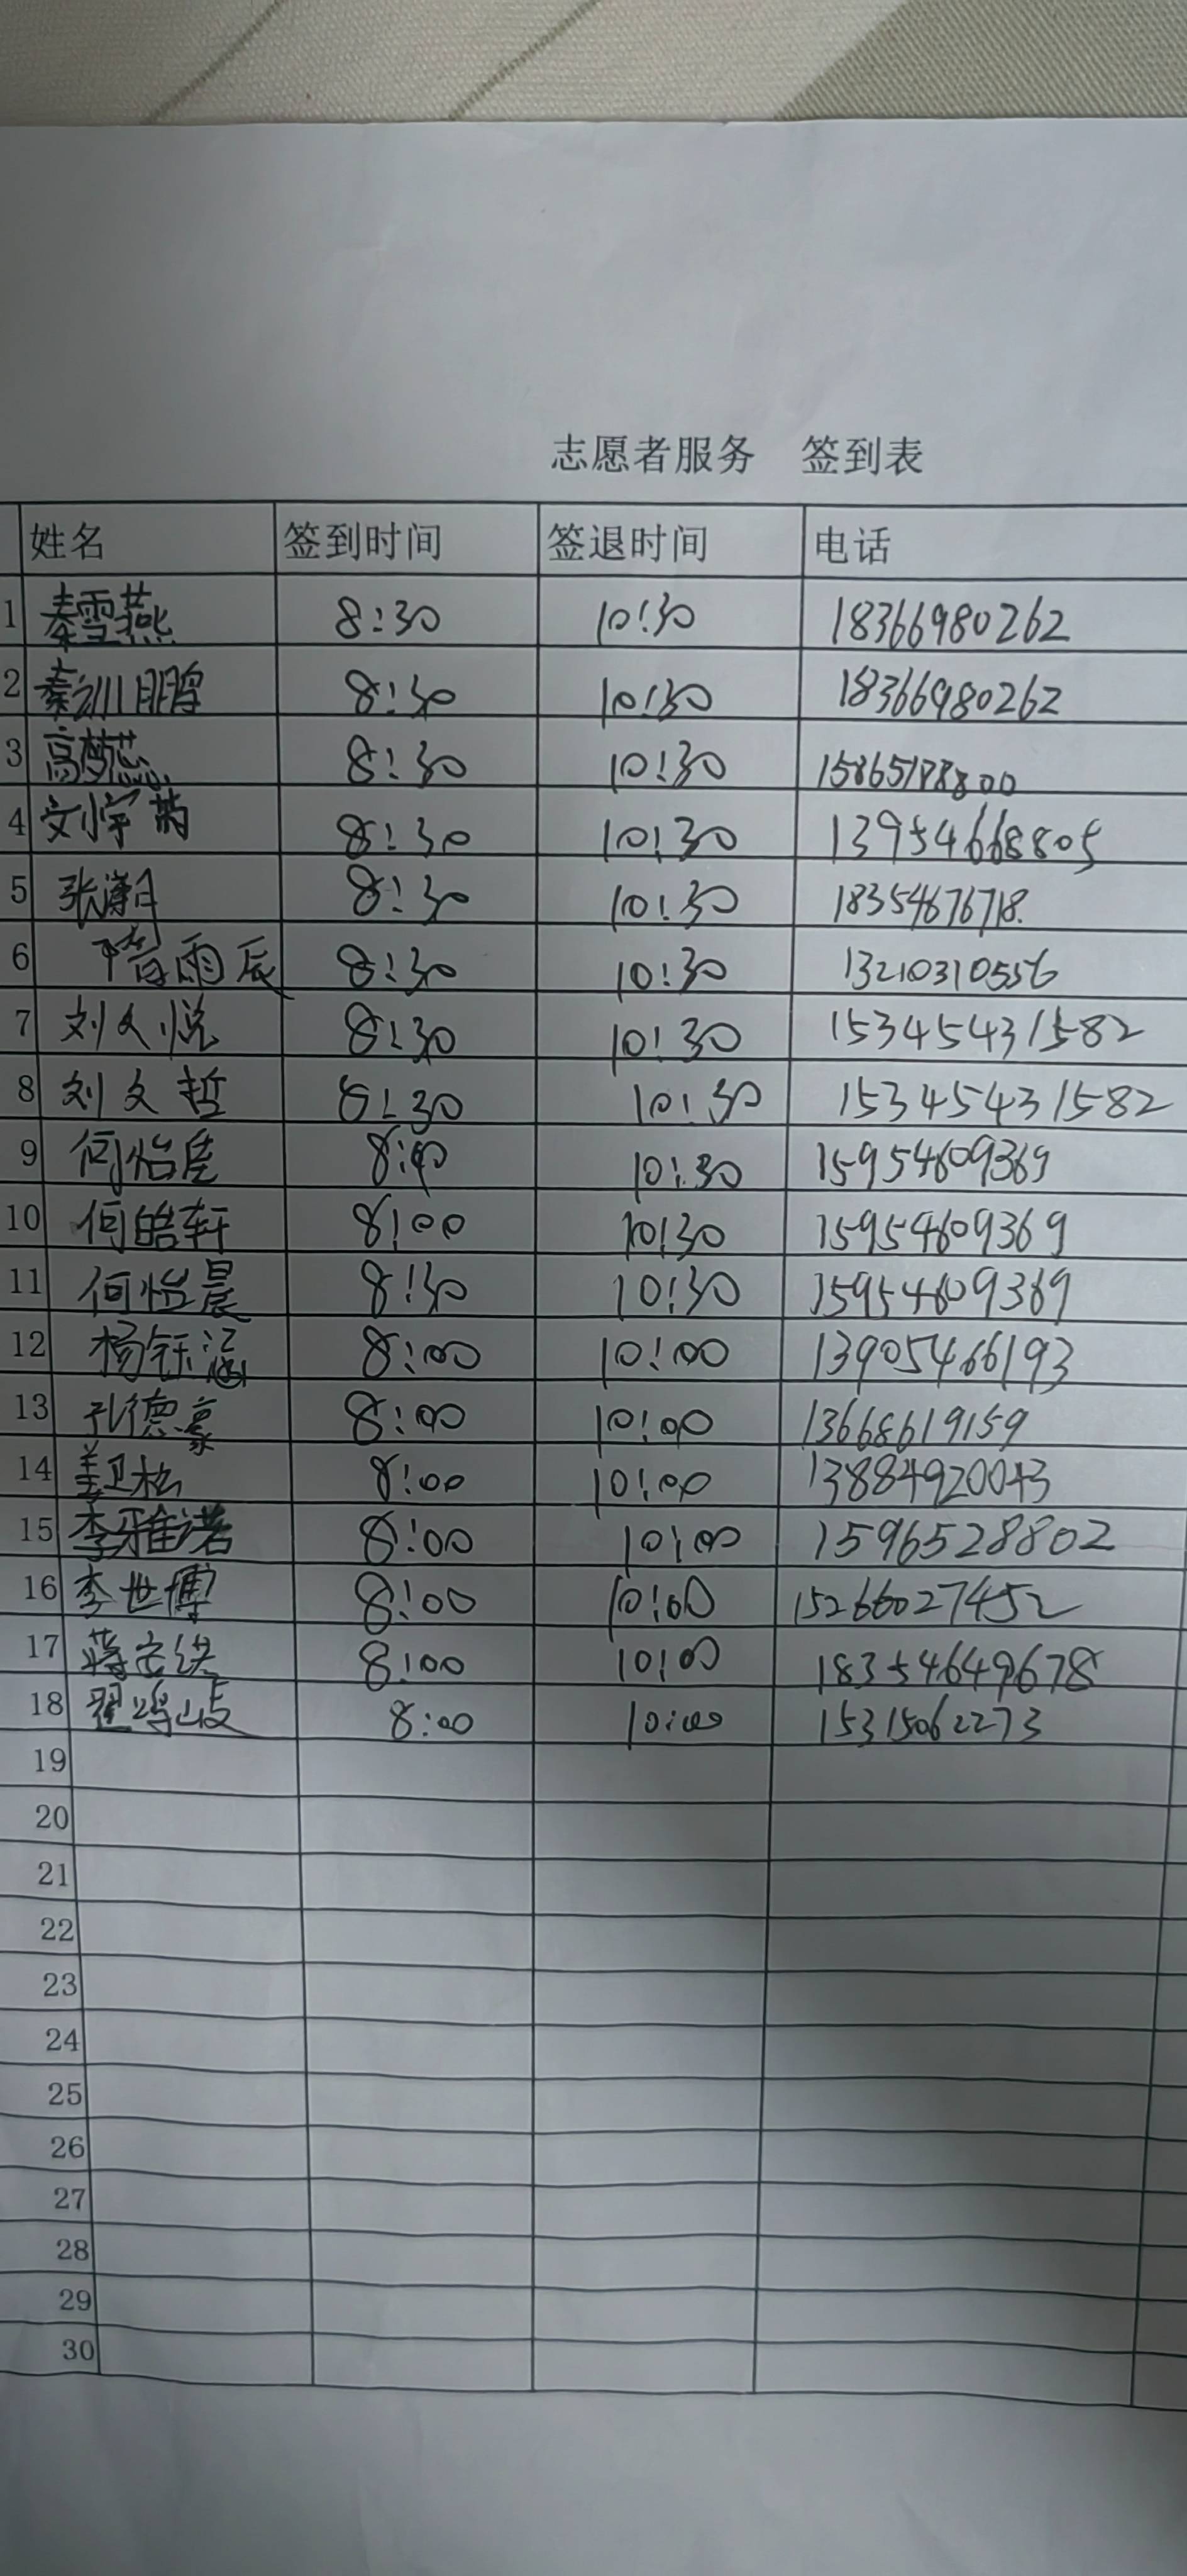 志愿者服务 签到表
姓名 签到时间 签退时间 电话
1 秦雪燕 8:30 10:30 18366980262
2 秦训鹏 8:30 10:30 18366980262
3 高梦蕊 8:30 10:30 15865178800
4 刘宇菡 8:30 10:30 13954668805
5 张瀚月 8:30 10:30 18354676718.
6 隋雨辰 8:30 10:30 13210310556
7 刘文悦 8:30 10:30 15345431582
8 刘文哲 8:30 10:30 15345431582
9 何怡 10:30 15954609369
10 何皓轩 8:00 10:30 15954609369
11 何怡晨 8:30 10:30 15954609369
12 杨钰涵 8:00 10:00 13905466193
13 孔德豪 8:00 10:00 13668619159
14 姜卫松 8:00 10:00 13884920043
15 李雅诺 8:00 10:00 1596528802
16 李世博 8:00 10:00 15266027452
17 蒋 8:00 10:00 18354649678
18 翟鸣岐 8:00 10:00 15315062273
19
20
21
22
23
24
25
26
27
28
29
30